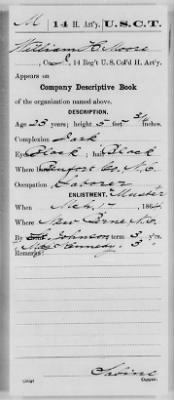 M | 14 H. Art'y. | U.S.C.T.
William H. Moore
Co. , 14 Reg't U. S. Col'd H. Art'y.
Appears on
Company Descriptive Book
of the organization named above.
DESCRIPTION.
Age 23 years; height 5 feet 3/4 inches.
Complexion Dark
Eyes Black; hair Black
Where born Beaufort Co. N.C.
Occupation Laborer
ENLISTMENT.
When Mch 1, 1864
Where New Berne N.C.
By Johnson term 3 y'rs.
Kennedy 3
Remarks:
Copyist.